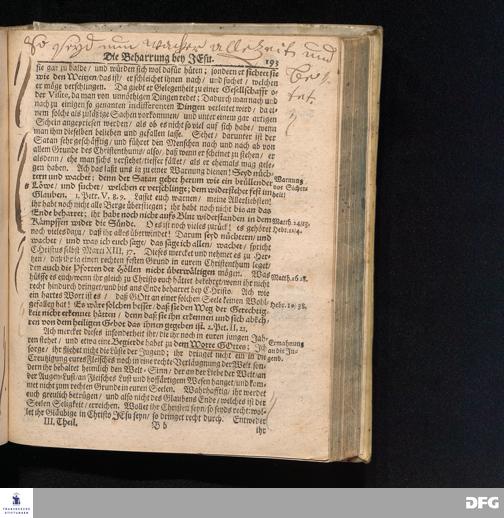 So seyd nun wacker allezeit und
betet.
Die Beharrung bey JEsu. 193
sie gar zu balde/ und würden sich wol dafür hüten; sondern er sichtet sie
wie den Weitzen das ist/ er schleichet ihnen nach/ und suchet/ welchen
er möge verschlingen. Da giebt er Gelegenheit zu einer Gesellschafft o-
der Visite, da man von unnöthigen Dingen redet; Dadurch man nach und
nach zu einigen so genanten indifferenten Dingen verleitet wird/ da ei-
nem solche als zuläßige Sachen vorkommen/ und unter einem gar artigen
Schein angepriesen werden/ als ob es nicht so viel auf sich habe/ wenn
man ihm dieselben belieben und gefallen lasse. Sehet/ darunter ist der
Satan sehr geschäfftig/ und führet den Menschen nach und nach ab von
allem Grunde des Christenthums/ also/ daß wenn er scheinet zu stehen/ er
alsdenn/ ehe man sichs versiehet/ tieffer fället/ als er ehemals mag gele-
gen haben. Ach das lasst uns ja zu einer Warnung dienen! Seyd nüch-
tern und wachet; denn der Satan gehet herum wie ein brüllender
Löwe/ und suchet/ welchen er verschlinge; dem widerstehet fest im
Glauben. 1. Petr. V, 8. 9. Lasset euch warnen/ meine Allerliebsten!
ihr habt noch nicht alle Berge überstiegen; ihr habt noch nicht biß an das
Ende beharret; ihr habt noch nicht aufs Blut widerstanden in dem
Kämpffen wider die Sünde. O es ist noch vieles zurück! es gehöret
noch vieles dazu/ daß ihr alles überwindet! Darum seyd nüchtern/ und
wachet/ und was ich euch sage/ das sage ich allen/ wachet/ spricht
Christus selbst Marci XIII, 37. Dieses mercket und nehmet es zu Her-
zen/ daß ihr ja einen rechten festen Grund in eurem Christenthum leget/
den auch die Pforten der Höllen nicht überwältigen mögen. Was
hülffe es euch/ wenn ihr gleich zu Christo euch hättet bekehret/ wenn ihr nicht
recht hindurch dringet/ und bis ans Ende beharret bey Christo. Ach wie
ein hartes Wort ist es/ daß GOtt an einer solchen Seele keinen Wohl-
gefallen hat! Es wäre solchen besser/ daß sie den Weg der Gerechtig-
keit nicht erkennet hätten/ denn daß sie ihn erkennen und sich abkeh-
ren von dem heiligen Gebot das ihnen gegeben ist. 2. Pet. II, 21.
Ach mercket dieses insonderheit ihr/ die ihr noch in euren jungen Jah-
ren stehet/ und etwa eine Begierde habet zu dem Worte GOttes; Ich
sorge/ ihr fliehet nicht die Lüste der Jugend; ihr dringet nicht ein in die
Creutzigung eures Fleisches noch in eine rechte Verläugnung der Welt/ son-
dern ihr behaltet heimlich den Welt-Sinn/ der an der Liebe der Welt/ an
der Augen-Lust/ an Fleisches Lust und hoffärtigem Wesen hanget/ und kom-
met nicht zum rechten Grunde in euren Seelen. Warhafftig/ ihr werdet
euch greulich betrügen/ und also nicht des Glaubens Ende/ welches ist der
Seelen Seligkeit/ erreichen. Wollet ihr Christen seyn/ so seyds recht; wol-
let ihr Gläubige in Christo JEsu seyn/ so dringet recht durch. Entweder
III. Theil. B b ihr
Warnung
vor Sicher-
heit;
Matth. 24/13.
Hebr. 12/4.
Matth. 16 18.
Hebr. 10/38.
Ermahnung
an die Ju-
gend.
FRANCKESCHE
STIFTUNGEN
DFG